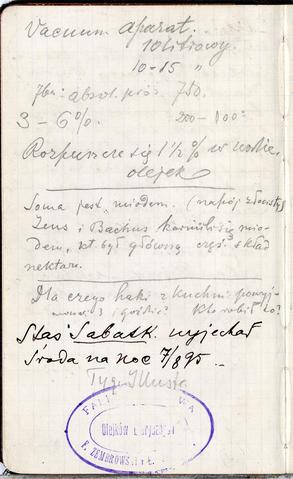 Vacuum aparat.
10 litrowy.
10-15 "
absol. próż. 750.
3 - 6%. 200 - 800°
Rozpuszcza się 1 1/2 % w wodzie.
olejek
Soma jest miodem. (napój
Zeus i Bachus karmili się mio-
dem, kt. był główną częś. skład
nektaru.
Dla czego haki z kuchni
i gośćie? Kto robił to?
Staś Sabatk. wyjechał
Środa na noc 7/8 95
Tyg. Illustr.
FA WA
Olejków Eterycznych
F. ZEMBROWSKI